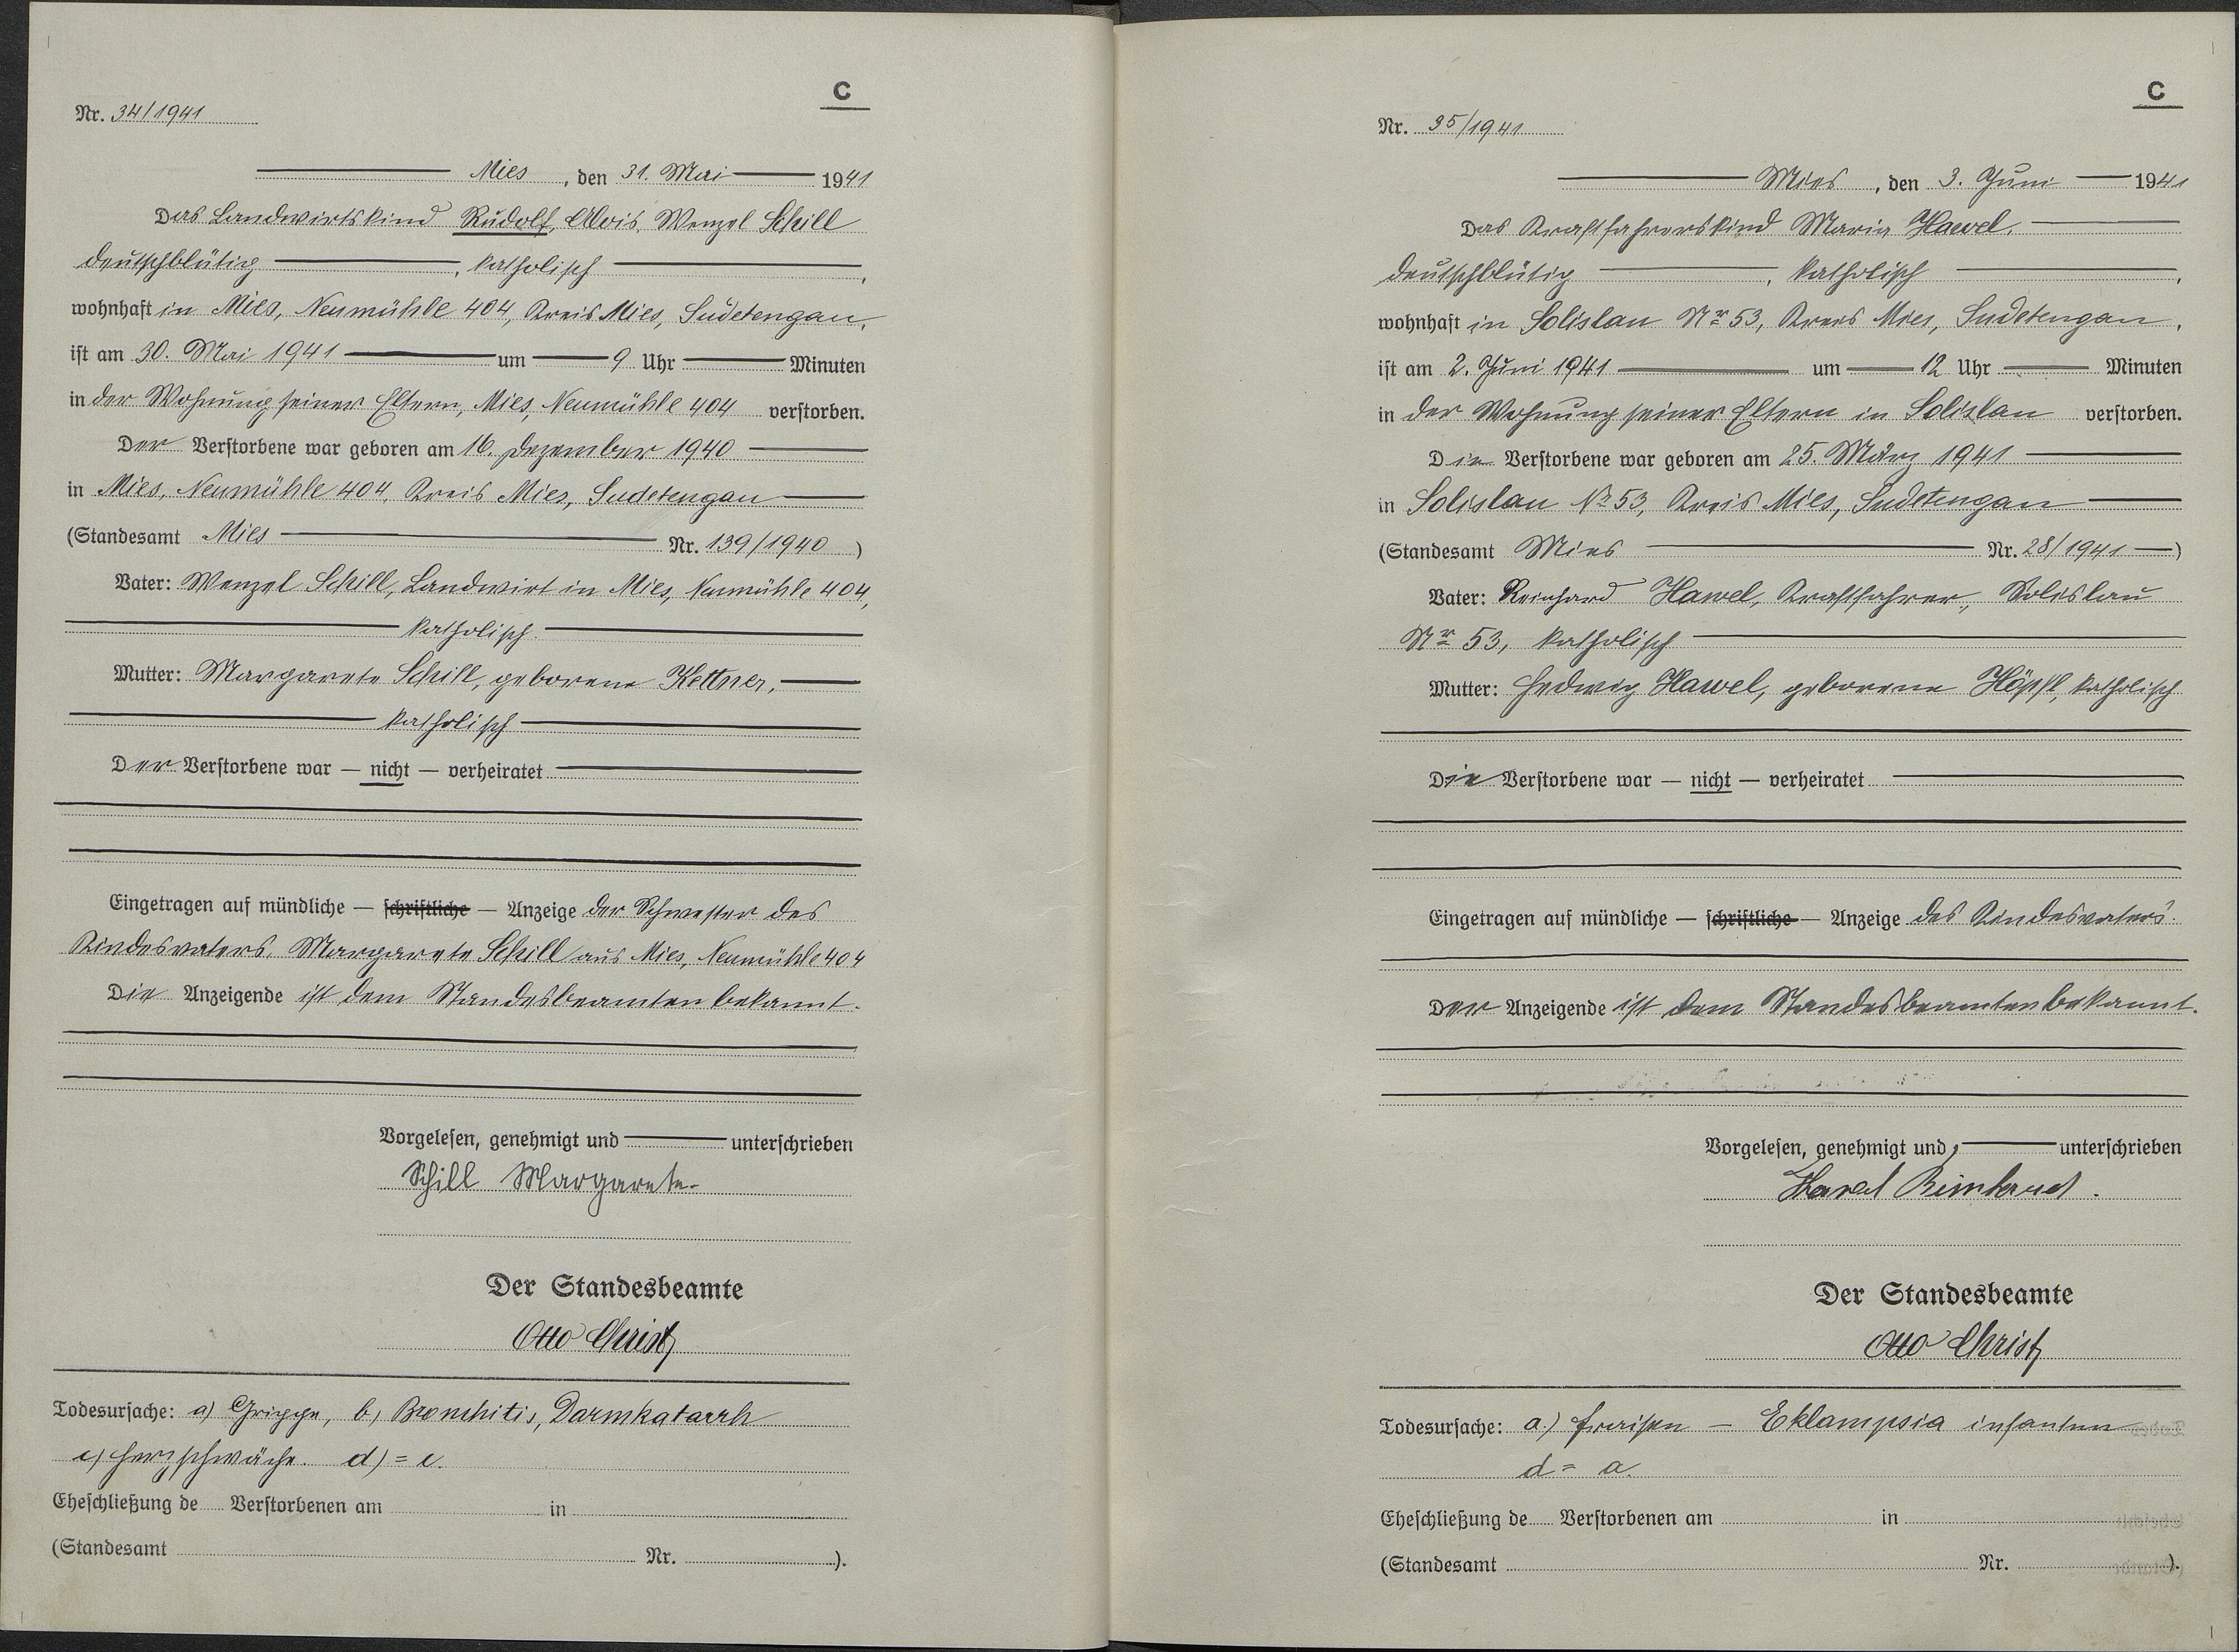 C
Nr. 34/1941
Mies, den 31. Mai 1941
Das Landwirtskind Rudolf, Alois, Wenzel Schill
deutschblütig, katholisch,
wohnhaft in Mies, Neumühle 404, Kreis Mies, Sudetengau,
ist am 30. Mai 1941 um 9 Uhr Minuten
in der Wohnung seiner Eltern, Mies, Neumühle 404 verstorben.
Der Verstorbene war geboren am 16. Dezember 1940
in Mies, Neumühle 404, Kreis Mies, Sudetengau
(Standesamt Mies Nr. 139/1940)
Vater: Wenzel Schill, Landwirt in Mies, Neumühle 404,
katholisch.
Mutter: Margarete Schill, geborene Kettner,
katholisch
Der Verstorbene war — nicht — verheiratet
Eingetragen auf mündliche — schriftliche — Anzeige der Schwester des
Kindesvaters, Margarete Schill aus Mies, Neumühle 404
Die Anzeigende ist dem Standesbeamten bekannt.
Vorgelesen, genehmigt und unterschrieben
Schill Margarete.
Der Standesbeamte
Otto Christ
Todesursache: a) Grippe, b) Bronchitis, Darmkatarrh
c) Herzschwäche. d) = c.
Eheschließung de Verstorbenen am in
(Standesamt Nr. ).
C
Nr. 35/1941
Mies, den 3. Juni 1941
Das Kraftfahrerskind Maria Hawel,
deutschblütig, katholisch,
wohnhaft in Solislau Nr 53, Kreis Mies, Sudetengau,
ist am 2. Juni 1941 um 12 Uhr Minuten
in der Wohnung seiner Eltern in Solislau verstorben.
Die Verstorbene war geboren am 25. März 1941
in Solislau Nr 53, Kreis Mies, Sudetengau
(Standesamt Mies Nr. 28/1941)
Vater: Reinhard Hawel, Kraftfahrer, Solislau
Nr 53, katholisch
Mutter: Hedwig Hawel, geborene Höpfl, katholisch
Die Verstorbene war — nicht — verheiratet
Eingetragen auf mündliche — schriftliche — Anzeige des Kindesvaters.
Der Anzeigende ist dem Standesbeamten bekannt.
Vorgelesen, genehmigt und unterschrieben
Havel Reinhard.
Der Standesbeamte
Otto Christ
Todesursache: a.) Fraisen — Eklampsia infantum
d = a.
Eheschließung de Verstorbenen am in
(Standesamt Nr. ).